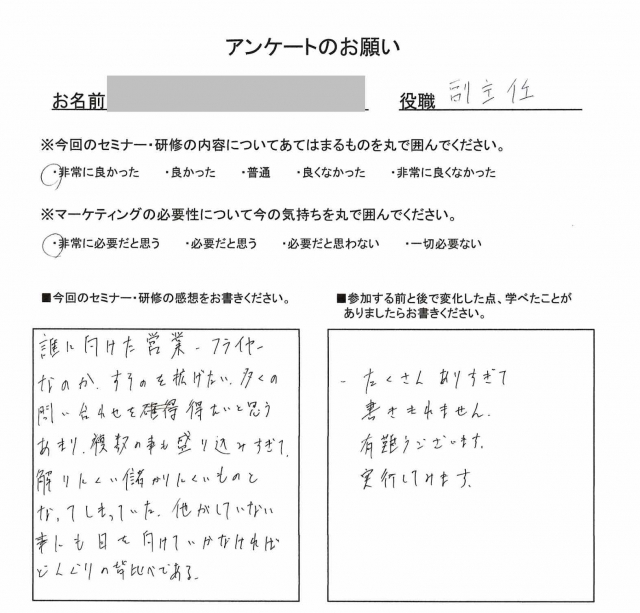 アンケートのお願い
お名前
役職 副主任
※今回のセミナー・研修の内容についてあてはまるものを丸で囲んでください。
・非常に良かった ・良かった ・普通 ・良くなかった ・非常に良くなかった
※マーケティングの必要性について今の気持ちを丸で囲んでください。
・非常に必要だと思う ・必要だと思う ・必要だと思わない ・一切必要ない
■今回のセミナー・研修の感想をお書きください。
誰に向けた営業-フライヤー
なのか、すそのを拡げたい、多くの
問い合わせを獲得得たいと思う
あまり、複数の事も盛り込みすぎて、
解りにくい儲かりにくいものと
なってしまっていた。他がしていない
事にも目を向けていかなければ
どんぐりの背比べである。
■参加する前と後で変化した点、学べたことが
ありましたらお書きください。
- たくさんありすぎて
書ききれません。
有難うございます。
実行してみます。